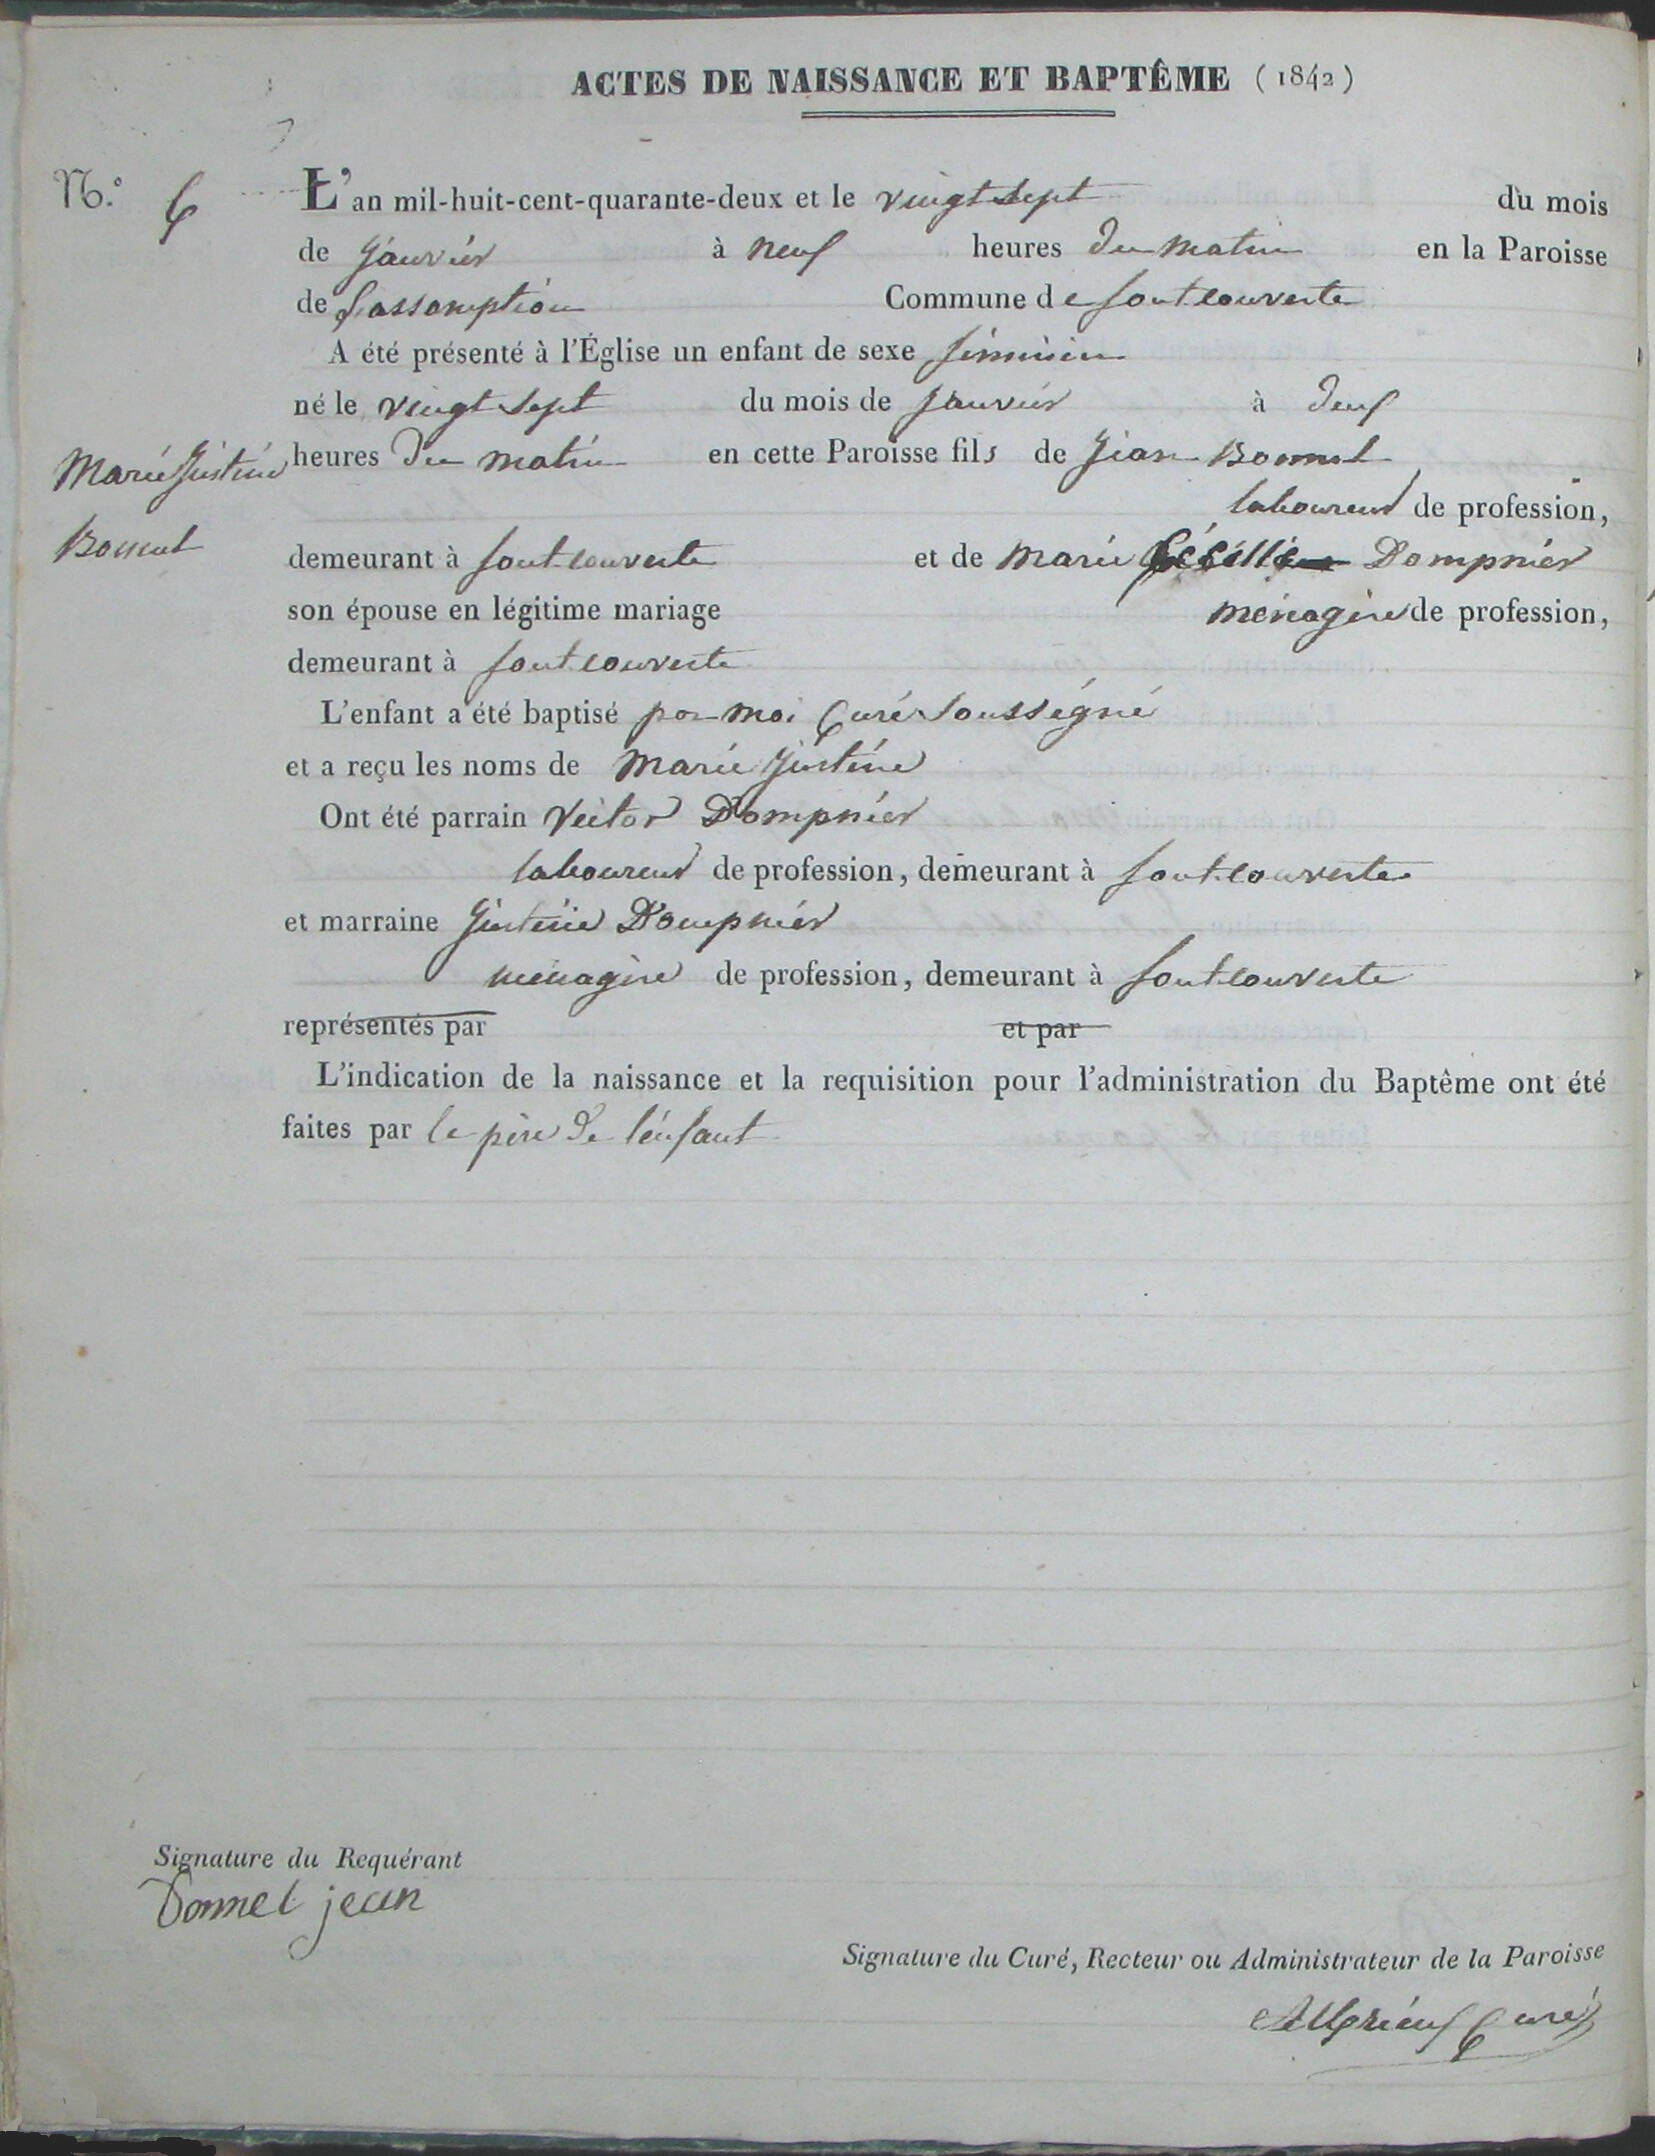 ACTES DE NAISSANCE ET BAPTÊME (1842)
N.º 6
L'an mil-huit-cent-quarante-deux et le vingt sept du mois
de janvier à neuf heures du matin en la Paroisse
de l'assomption Commune de fontcouverte
A été présenté à l'Église un enfant de sexe féminin
né le vingt sept du mois de janvier à deux
heures du matin en cette Paroisse fils de Jean Bonnel
laboureur de profession,
Marie Justine
Bonnel
demeurant à fontcouverte et de Marie Dompnier
son épouse en légitime mariage ménagère de profession,
demeurant à fontcouverte
L'enfant a été baptisé par moi Curé soussigné
et a reçu les noms de Marie Justine
Ont été parrain Victor Dompnier
laboureur de profession, demeurant à fontcouverte
et marraine Justine Dompnier
ménagère de profession, demeurant à fontcouverte
représentés par et par
L'indication de la naissance et la requisition pour l'administration du Baptême ont été
faites par le père de l'enfant
Signature du Requérant
Bonnel jean
Signature du Curé, Recteur ou Administrateur de la Paroisse
Curé